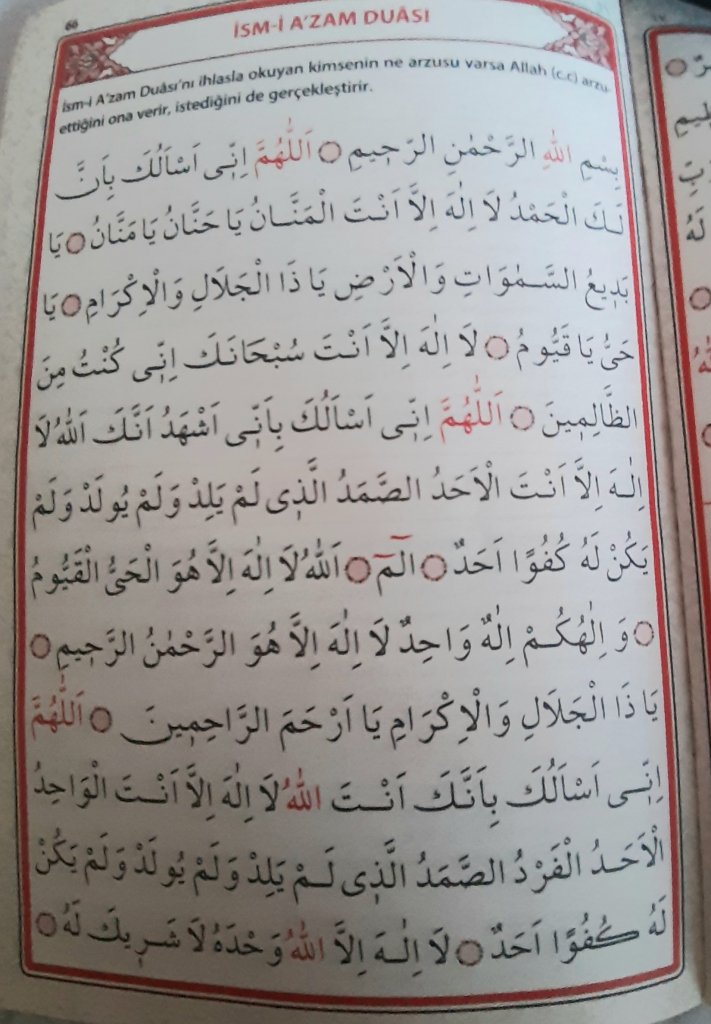 66
İSM-İ A'ZAM DUÂSI
İsm-i A'zam Duâsı'nı ihlasla okuyan kimsenin ne arzusu varsa Allah (c.c) arzu
ettiğini ona verir, istediğini de gerçekleştirir.
بِسْمِ اللّٰهِ الرَّحْمٰنِ الرَّحِيمِ ۝ اَللّٰهُمَّ اِنِّى اَسْاَلُكَ بِاَنَّ
لَكَ الْحَمْدُ لَا اِلٰهَ اِلَّا اَنْتَ الْمَنَّانُ يَا حَنَّانُ يَا مَنَّانُ ۝ يَا
بَدِيعُ السَّمٰوَاتِ وَالْاَرْضِ يَا ذَا الْجَلَالِ وَالْاِكْرَامِ ۝ يَا
حَىُّ يَا قَيُّومُ ۝ لَا اِلٰهَ اِلَّا اَنْتَ سُبْحَانَكَ اِنِّى كُنْتُ مِنَ
الظَّالِمِينَ ۝ اَللّٰهُمَّ اِنِّى اَسْاَلُكَ بِاَنِّى اَشْهَدُ اَنَّكَ اَللّٰهُ لَا
اِلٰهَ اِلَّا اَنْتَ الْاَحَدُ الصَّمَدُ الَّذِى لَمْ يَلِدْ وَلَمْ يُولَدْ وَلَمْ
يَكُنْ لَهُ كُفُوًا اَحَدٌ ۝ الٓمٓ ۝ اَللّٰهُ لَا اِلٰهَ اِلَّا هُوَ الْحَىُّ الْقَيُّومُ
۝ وَ اِلٰهُكُمْ اِلٰهٌ وَاحِدٌ لَا اِلٰهَ اِلَّا هُوَ الرَّحْمٰنُ الرَّحِيمِ ۝
يَا ذَا الْجَلَالِ وَالْاِكْرَامِ يَا اَرْحَمَ الرَّاحِمِينَ ۝ اَللّٰهُمَّ
اِنِّى اَسْاَلُكَ بِاَنَّكَ اَنْتَ اللّٰهُ لَا اِلٰهَ اِلَّا اَنْتَ الْوَاحِدُ
الْاَحَدُ الْفَرْدُ الصَّمَدُ الَّذِى لَمْ يَلِدْ وَلَمْ يُولَدْ وَلَمْ يَكُنْ
لَهُ كُفُوًا اَحَدٌ ۝ لَا اِلٰهَ اِلَّا اللّٰهُ وَحْدَهُ لَا شَرِيكَ لَهُ ۝